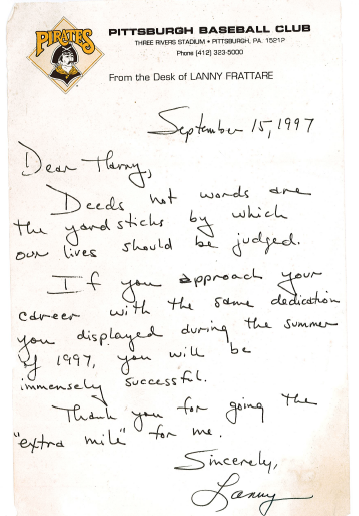 PIRATES
PITTSBURGH BASEBALL CLUB
THREE RIVERS STADIUM • PITTSBURGH, PA. 15212
Phone (412) 323-5000
From the Desk of LANNY FRATTARE
September 15, 1997
Dear Harry,
Deeds not words are
the yard sticks by which
our lives should be judged.
If you approach your
career with the same dedication
you displayed during the summer
of 1997, you will be
immensely successful.
Thank you for going the
"extra mile" for me.
Sincerely,
Lanny